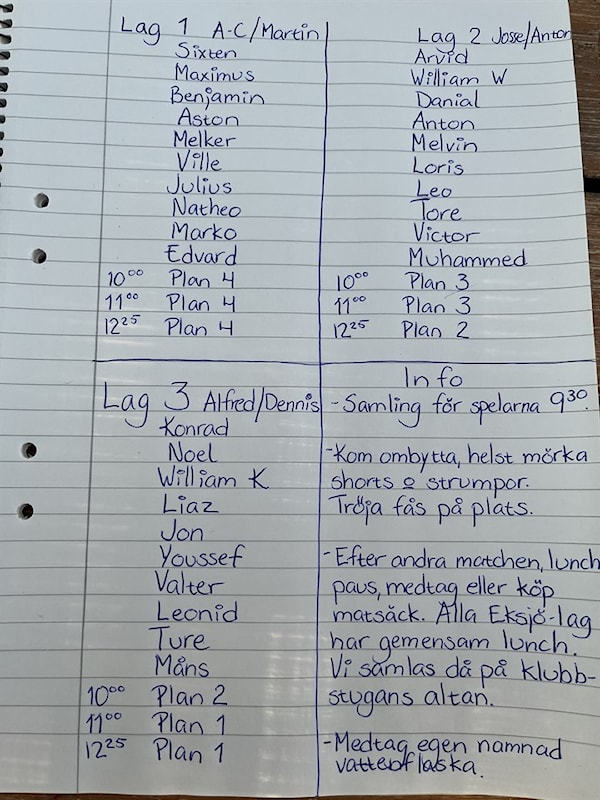 Lag 1 A-C/Martin
Sixten
Maximus
Benjamin
Aston
Melker
Ville
Julius
Natheo
Marko
Edvard
10⁰⁰ Plan 4
11⁰⁰ Plan 4
12²⁵ Plan 4
Lag 2 Josse/Anton
Arvid
William W
Danial
Anton
Melvin
Loris
Leo
Tore
Victor
Muhammed
10⁰⁰ Plan 3
11⁰⁰ Plan 3
12²⁵ Plan 2
Lag 3 Alfred/Dennis
Konrad
Noel
William K
Liaz
Jon
Youssef
Valter
Leonid
Ture
Måns
10⁰⁰ Plan 2
11⁰⁰ Plan 1
12²⁵ Plan 1
Info
- Samling för spelarna 9³⁰.
- Kom ombytta, helst mörka
shorts o strumpor.
Tröja fås på plats.
- Efter andra matchen, lunch
paus, medtag eller köp
matsäck. Alla Eksjö-lag
har gemensam lunch.
Vi samlas då på klubb-
stugans altan.
- Medtag egen namnad
vattenflaska.